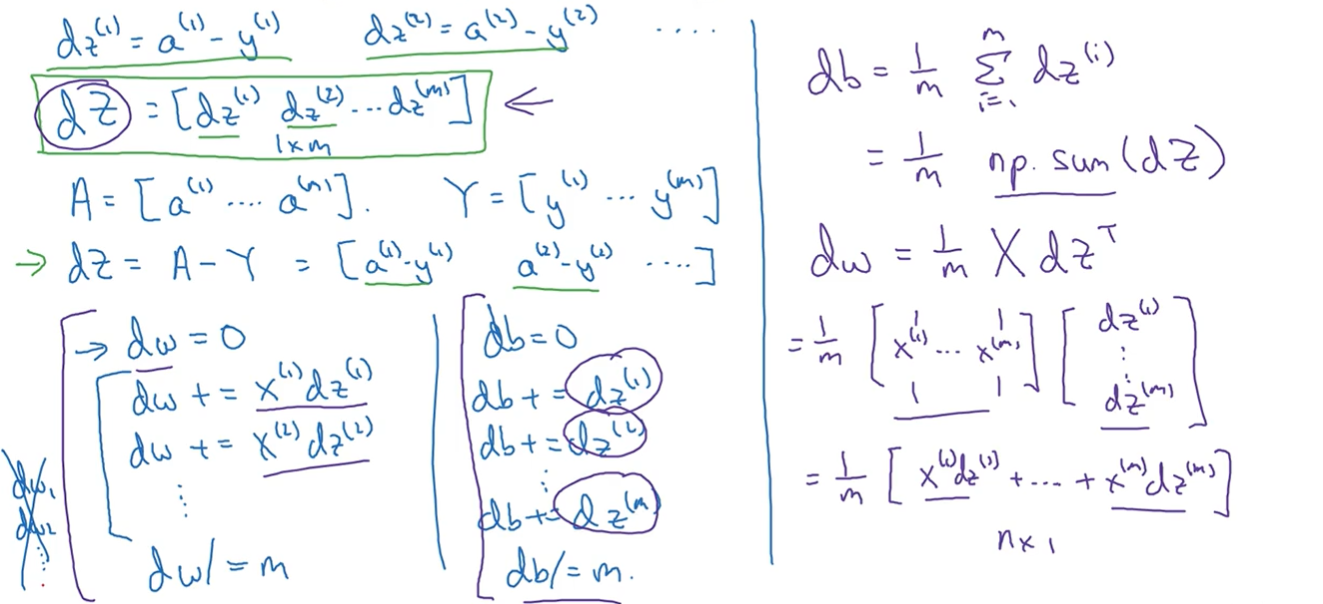 dz⁽¹⁾ = a⁽¹⁾ - y⁽¹⁾ dz⁽²⁾ = a⁽²⁾ - y⁽²⁾ ....
dZ = [dz⁽¹⁾ dz⁽²⁾ ... dz⁽ᵐ⁾] ←
1×m
A = [a⁽¹⁾ .... a⁽ᵐ⁾]. Y = [y⁽¹⁾ ... y⁽ᵐ⁾]
→ dZ = A - Y = [a⁽¹⁾-y⁽¹⁾ a⁽²⁾-y⁽²⁾ ....]
→ dw = 0
dw += x⁽¹⁾dz⁽¹⁾
dw += x⁽²⁾dz⁽²⁾
⋮
dw/=m
dw₁
dw₂
⋮
db=0
db+=dz⁽¹⁾
db+=dz⁽²⁾
⋮
db+=dz⁽ᵐ⁾
db/=m.
db = 1/m Σᵢ₌₁ᵐ dz⁽ⁱ⁾
= 1/m np.sum(dZ)
dw = 1/m X dZᵀ
= 1/m [x⁽¹⁾ ... x⁽ᵐ⁾] [dz⁽¹⁾ ⋮ dz⁽ᵐ⁾]
= 1/m [x⁽¹⁾dz⁽¹⁾ + ... + x⁽ᵐ⁾dz⁽ᵐ⁾]
n×1